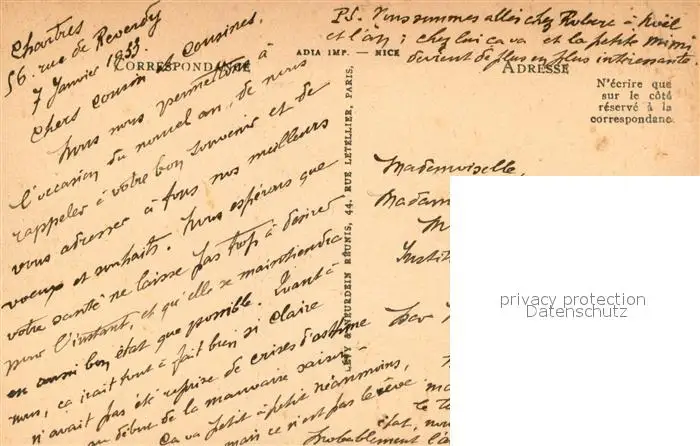 Chartres
56, rue de Reverdy
7 Janvier 1933.
Chers Cousin et Cousines,
Nous nous permettons à
l'occasion du nouvel an, de nous
rappeler à votre bon souvenir et de
vous adresser à tous nos meilleurs
voeux et souhaits. Nous espérons que
votre santé ne laisse pas trop à désirer
pour l'instant, et qu'elle se maintiendra
en aussi bon état que possible. Quant à
nous, ça irait tout à fait bien si Claire
n'avait pas été reprise de crises d'asthme
au début de la mauvaise saison
Ça va petit à petit néanmoins,
mais ce n'est pas le rêve
Probablement
CORRESPONDANCE
ADIA IMP. — NICE
LÉVY & NEURDEIN RÉUNIS, 44, RUE LETELLIER, PARIS.
PS. Nous sommes allés chez Robert à Noël
et l'an ; chez lui ça va et la petite Mimi
devient de plus en plus intéressante.
ADRESSE
N'écrire que
sur le côté
réservé à la
correspondanc.
Mademoiselle,
Madam
Instit
état, nou
privacy protection
Datenschutz